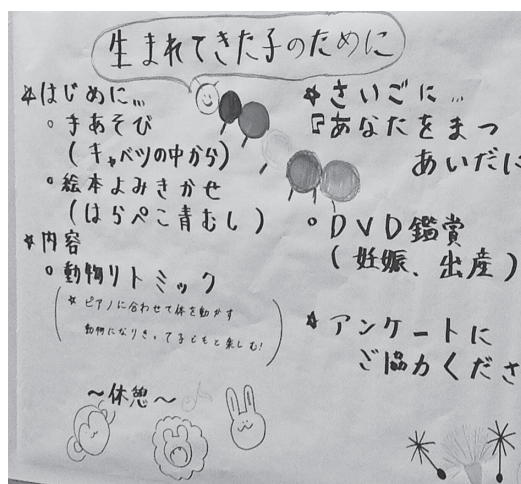 生まれてきた子のために
☆はじめに…
○手あそび
(キャベツの中から)
○絵本よみきかせ
(はらぺこ青むし)
☆内容
○動物リトミック
(☆ピアノに合わせて体を動かす
動物になりきって子どもと楽しむ!)
～休憩～
☆さいごに…
『あなたをまつ
あいだに
○DVD鑑賞
(妊娠、出産)
☆アンケートに
ご協力くださ